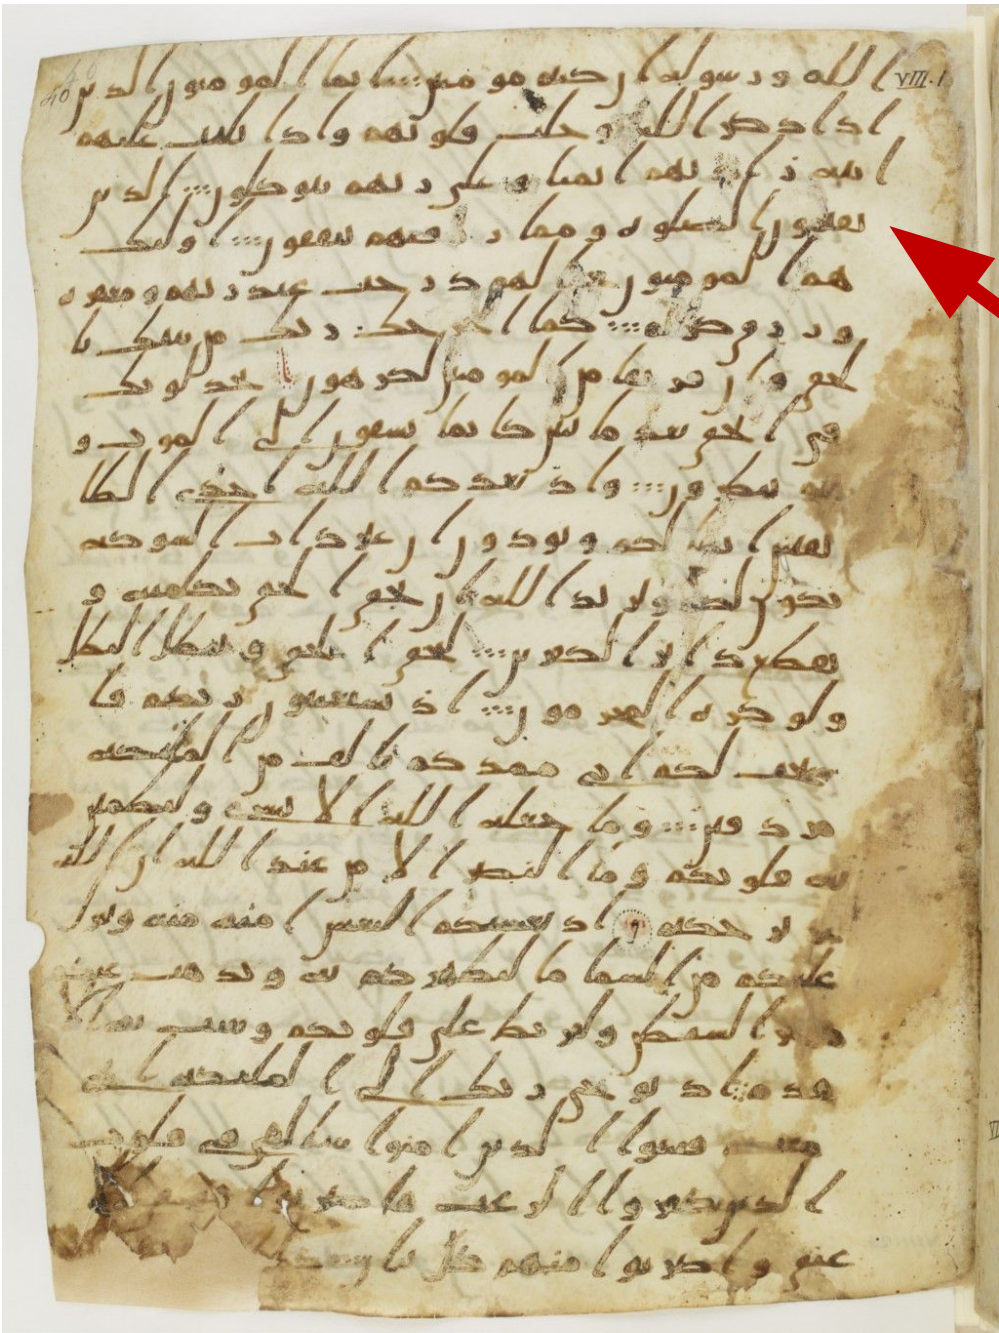 الله ورسوله ان كنتم مومنين ؞ انما المومنون الذين
اذا ذكر الله وجلت قلوبهم واذا تليت عليهم
ايته زادتهم ايمنا وعلى ربهم يتوكلون ؞ الذين
يقيمون الصلوه ومما رزقنهم ينفقون ؞ اوليك
هم المومنون حقا لهم درجت عند ربهم ومغفره
ورزق كريم ؞ كما اخرجك ربك من بيتك با
لحق وان فريقا من المومنين لكرهون ؞ يجدلونك
في الحق بعد ما تبين كانما يسقون الى الموت و
هم ينظرون ؞ واذ يعدكم الله احدى الطا
يفتين انها لكم وتودون ان غير ذات الشوكه
تكون لكم ويريد الله ان يحق الحق بكلمته و
يقطع دابر الكفرين ؞ ليحق الحق ويبطل البطل
ولو كره المجرمون ؞ اذ تستغيثون ربكم فا
ستجب لكم اني ممدكم بالف من المليكه
مردفين ؞ وما جعله الله الا بشرى ولتطمين
به قلوبكم وما النصر الا من عند الله ان الله
عزيز حكيم اذ يغشيكم النعس امنه منه وينزل
عليكم من السما ما ليطهركم به ويذهب عنكم
رجز الشيطن وليربط على قلوبكم ويثبت به ا
لاقدم ؞ اذ يوحي ربك الى المليكه اني
معكم فثبتوا الذين امنوا سالقي في قلوب
الذين كفروا الرعب فاضربوا
عنق واضربوا منهم كل بنان
VIII.1
40